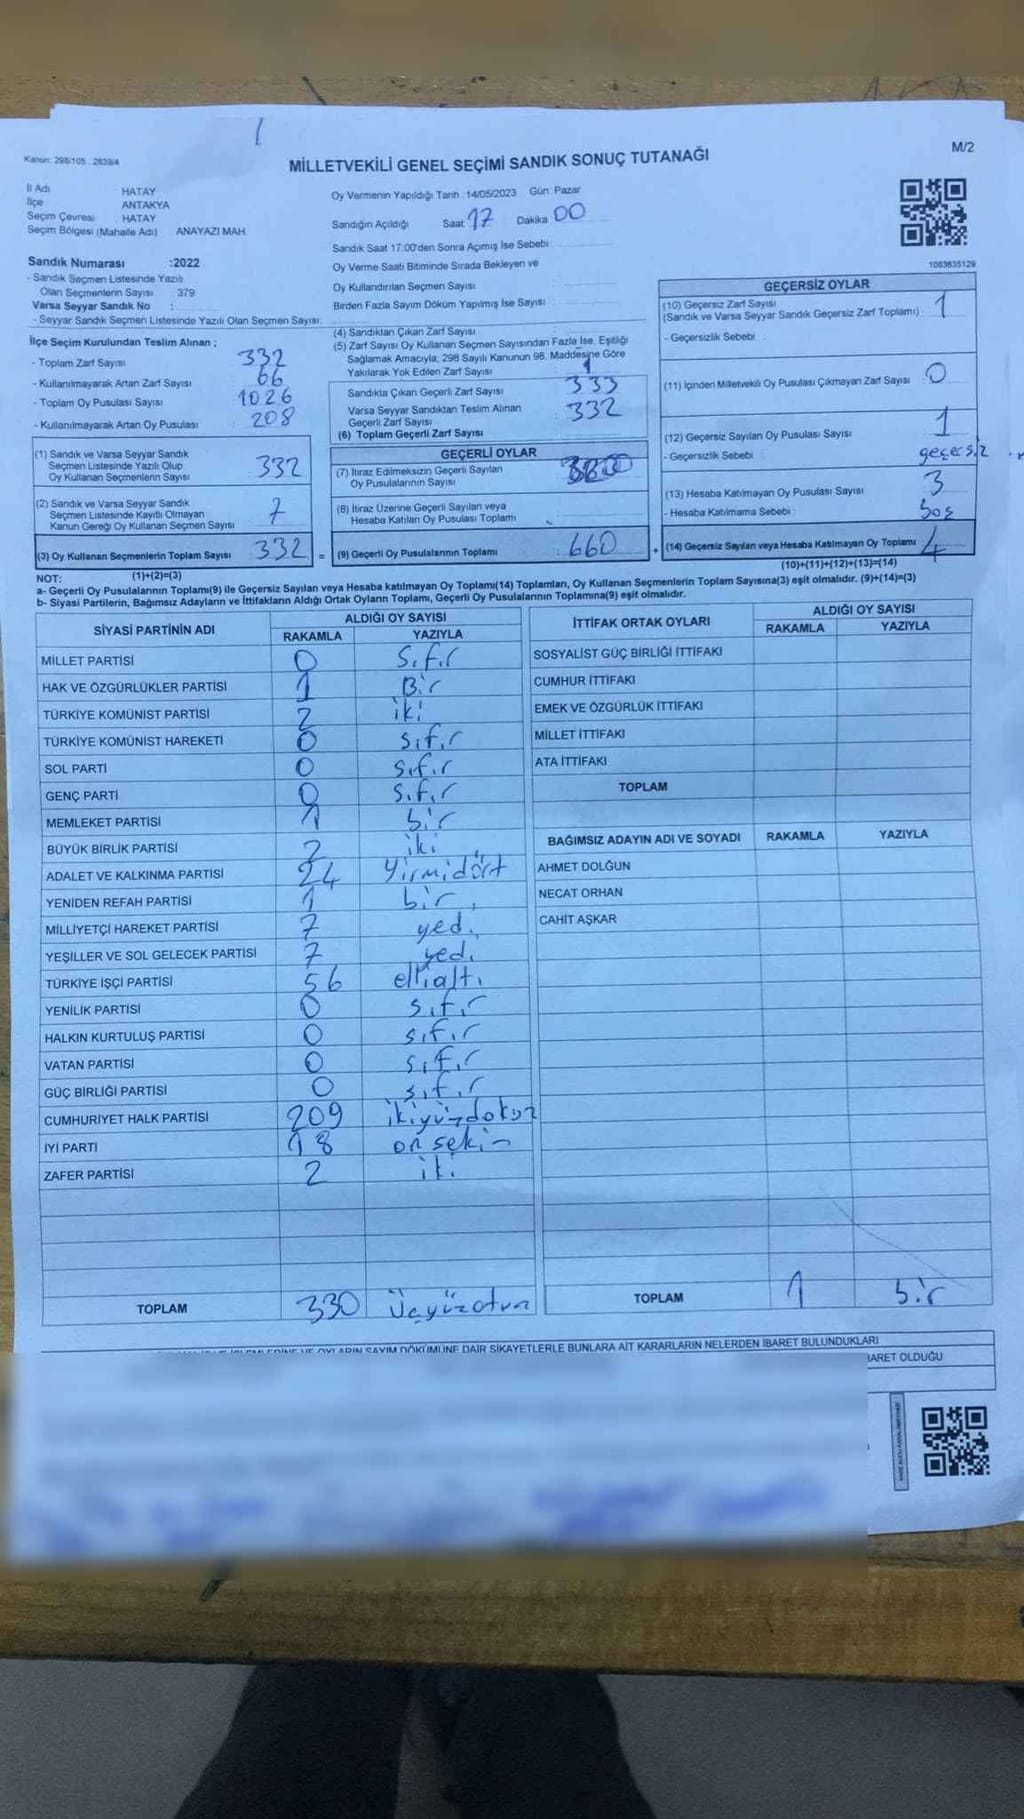 Kanun: 298/105 , 2839/4
MİLLETVEKİLİ GENEL SEÇİMİ SANDIK SONUÇ TUTANAĞI
M/2
İl Adı HATAY
İlçe ANTAKYA
Seçim Çevresi HATAY
Seçim Bölgesi (Mahalle Adı) ANAYAZI MAH.
Sandık Numarası :2022
- Sandık Seçmen Listesinde Yazılı
Olan Seçmenlerin Sayısı : 379
Varsa Seyyar Sandık No :
- Seyyar Sandık Seçmen Listesinde Yazılı Olan Seçmen Sayısı:
Oy Vermenin Yapıldığı Tarih : 14/05/2023 Gün: Pazar
Sandığın Açıldığı Saat 17 Dakika 00
Sandık Saat 17:00'den Sonra Açmış İse Sebebi
Oy Verme Saati Bitiminde Sırada Bekleyen ve
Oy Kullandırılan Seçmen Sayısı
Birden Fazla Sayım Döküm Yapılmış İse Sayısı
1083635129
İlçe Seçim Kurulundan Teslim Alınan ;
- Toplam Zarf Sayısı 332
- Kullanılmayarak Artan Zarf Sayısı 66
- Toplam Oy Pusulası Sayısı 1026
- Kullanılmayarak Artan Oy Pusulası 208
(1) Sandık ve Varsa Seyyar Sandık
Seçmen Listesinde Yazılı Olup
Oy Kullanan Seçmenlerin Sayısı 332
(2) Sandık ve Varsa Seyyar Sandık
Seçmen Listesinde Kayıtlı Olmayan
Kanun Gereği Oy Kullanan Seçmen Sayısı 7
(3) Oy Kullanan Seçmenlerin Toplam Sayısı 332 =
(4) Sandıktan Çıkan Zarf Sayısı
(5) Zarf Sayısı Oy Kullanan Seçmen Sayısından Fazla İse, Eşitliği
Sağlamak Amacıyla; 298 Sayılı Kanunun 98. Maddesine Göre
Yakılarak Yok Edilen Zarf Sayısı 1
Sandıkta Çıkan Geçerli Zarf Sayısı 333
Varsa Seyyar Sandıktan Teslim Alınan
Geçerli Zarf Sayısı 332
(6) Toplam Geçerli Zarf Sayısı
GEÇERLİ OYLAR
(7) İtiraz Edilmeksizin Geçerli Sayılan
Oy Pusulalarının Sayısı
(8) İtiraz Üzerine Geçerli Sayılan veya
Hesaba Katılan Oy Pusulası Toplamı
(9) Geçerli Oy Pusulalarının Toplamı 660 +
GEÇERSİZ OYLAR
(10) Geçersiz Zarf Sayısı 1
(Sandık ve Varsa Seyyar Sandık Geçersiz Zarf Toplamı)
- Geçersizlik Sebebi :
(11) İçinden Milletvekili Oy Pusulası Çıkmayan Zarf Sayısı 0
(12) Geçersiz Sayılan Oy Pusulası Sayısı 1
- Geçersizlik Sebebi : geçersiz
(13) Hesaba Katılmayan Oy Pusulası Sayısı 3
- Hesaba Katılmama Sebebi : boş
(14) Geçersiz Sayılan veya Hesaba Katılmayan Oy Toplamı 4
NOT: (1)+(2)=(3)
(10)+(11)+(12)+(13)=(14)
a- Geçerli Oy Pusulalarının Toplamı(9) ile Geçersiz Sayılan veya Hesaba katılmayan Oy Toplamı(14) Toplamları, Oy Kullanan Seçmenlerin Toplam Sayısına(3) eşit olmalıdır. (9)+(14)=(3)
b- Siyasi Partilerin, Bağımsız Adayların ve İttifakların Aldığı Ortak Oyların Toplamı, Geçerli Oy Pusulalarının Toplamına(9) eşit olmalıdır.
SİYASİ PARTİNİN ADI ALDIĞI OY SAYISI
RAKAMLA YAZIYLA
MİLLET PARTİSİ 0 sıfır
HAK VE ÖZGÜRLÜKLER PARTİSİ 1 Bir
TÜRKİYE KOMÜNİST PARTİSİ 2 iki
TÜRKİYE KOMÜNİST HAREKETİ 0 sıfır
SOL PARTİ 0 sıfır
GENÇ PARTİ 0 sıfır
MEMLEKET PARTİSİ 1 bir
BÜYÜK BİRLİK PARTİSİ 2 iki
ADALET VE KALKINMA PARTİSİ 24 Yirmidört
YENİDEN REFAH PARTİSİ 1 bir
MİLLİYETÇİ HAREKET PARTİSİ 7 yedi
YEŞİLLER VE SOL GELECEK PARTİSİ 7 yedi
TÜRKİYE İŞÇİ PARTİSİ 56 ellialtı
YENİLİK PARTİSİ 0 sıfır
HALKIN KURTULUŞ PARTİSİ 0 sıfır
VATAN PARTİSİ 0 sıfır
GÜÇ BİRLİĞİ PARTİSİ 0 sıfır
CUMHURİYET HALK PARTİSİ 209 ikiyüzdokuz
İYİ PARTİ 18 on sekiz
ZAFER PARTİSİ 2 iki
TOPLAM 330 Üçyüzotuz
İTTİFAK ORTAK OYLARI ALDIĞI OY SAYISI
RAKAMLA YAZIYLA
SOSYALİST GÜÇ BİRLİĞİ İTTİFAKI
CUMHUR İTTİFAKI
EMEK VE ÖZGÜRLÜK İTTİFAKI
MİLLET İTTİFAKI
ATA İTTİFAKI
TOPLAM
BAĞIMSIZ ADAYIN ADI VE SOYADI RAKAMLA YAZIYLA
AHMET DOLĞUN
NECAT ORHAN
CAHİT AŞKAR
TOPLAM 1 bir
OYLARIN SAYIM DÖKÜMÜNE DAİR ŞİKAYETLERLE BUNLARA AİT KARARLARIN NELERDEN İBARET BULUNDUKLARI
BARET OLDUĞU